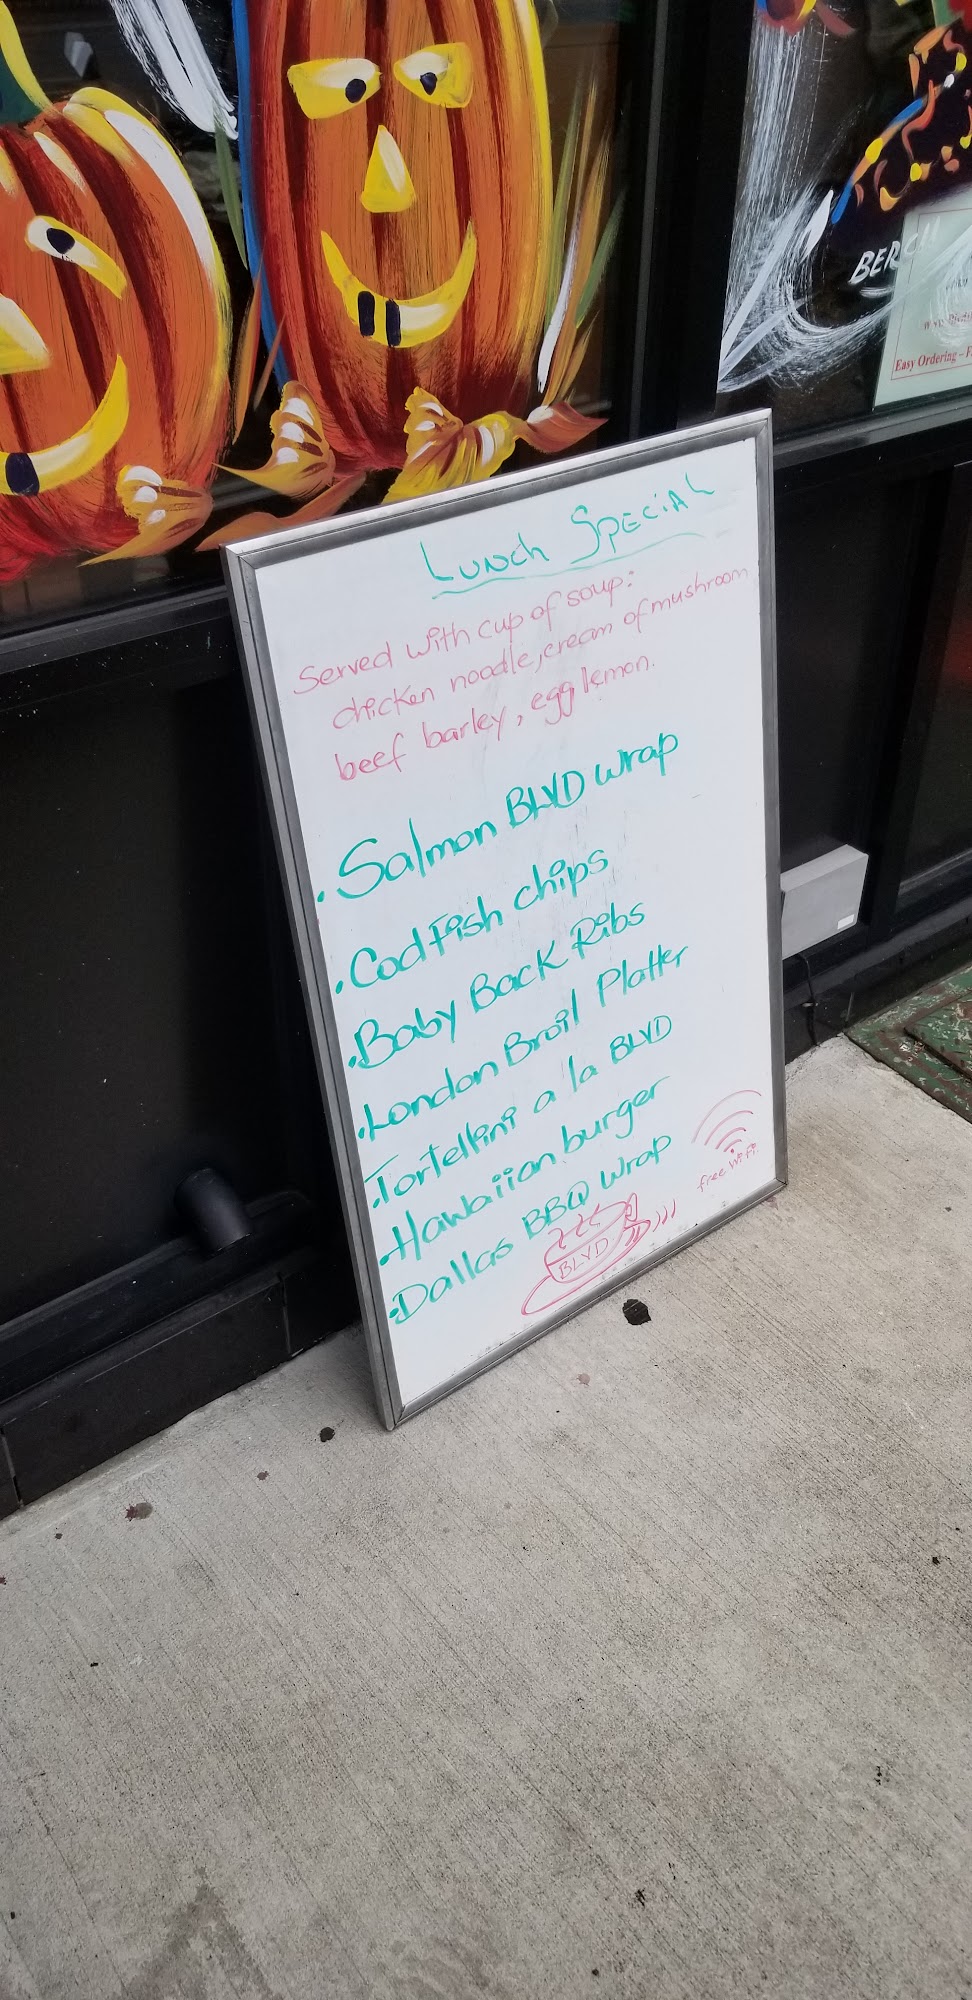 BERGH
Easy Ordering - F
Lunch Special
Served with cup of soup:
chicken noodle, cream of mushroom
beef barley, egg lemon.
. Salmon BLVD wrap
. Codfish chips
. Baby Back Ribs
. London Broil Platter
. Tortellini a la BLVD
. Hawaiian burger
. Dallas BBQ Wrap
free WiFi.
BLVD